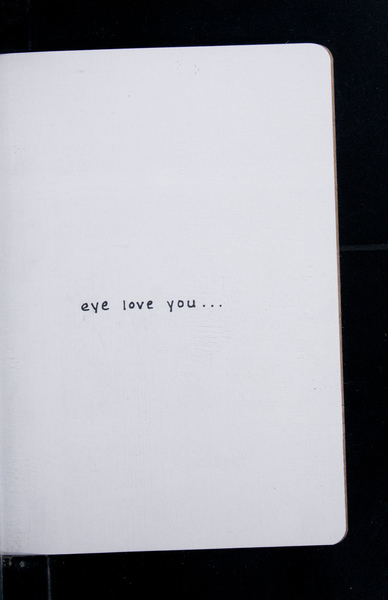 eye love you...